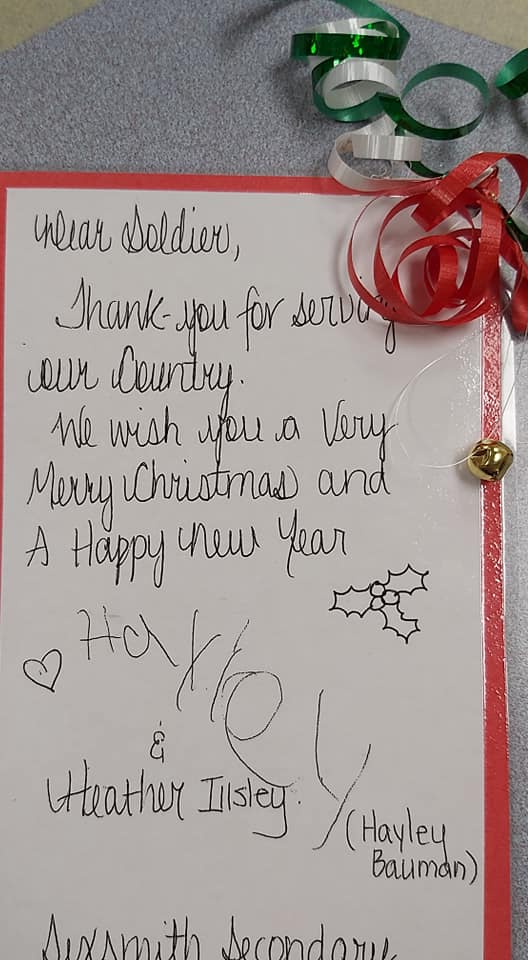 Dear Soldier,
Thank-you for serving
our Country.
We wish you a Very
Merry Christmas and
A Happy New Year
Hayley
&
Heather Illsley.
(Hayley
Bauman)
Sexsmith Secondary